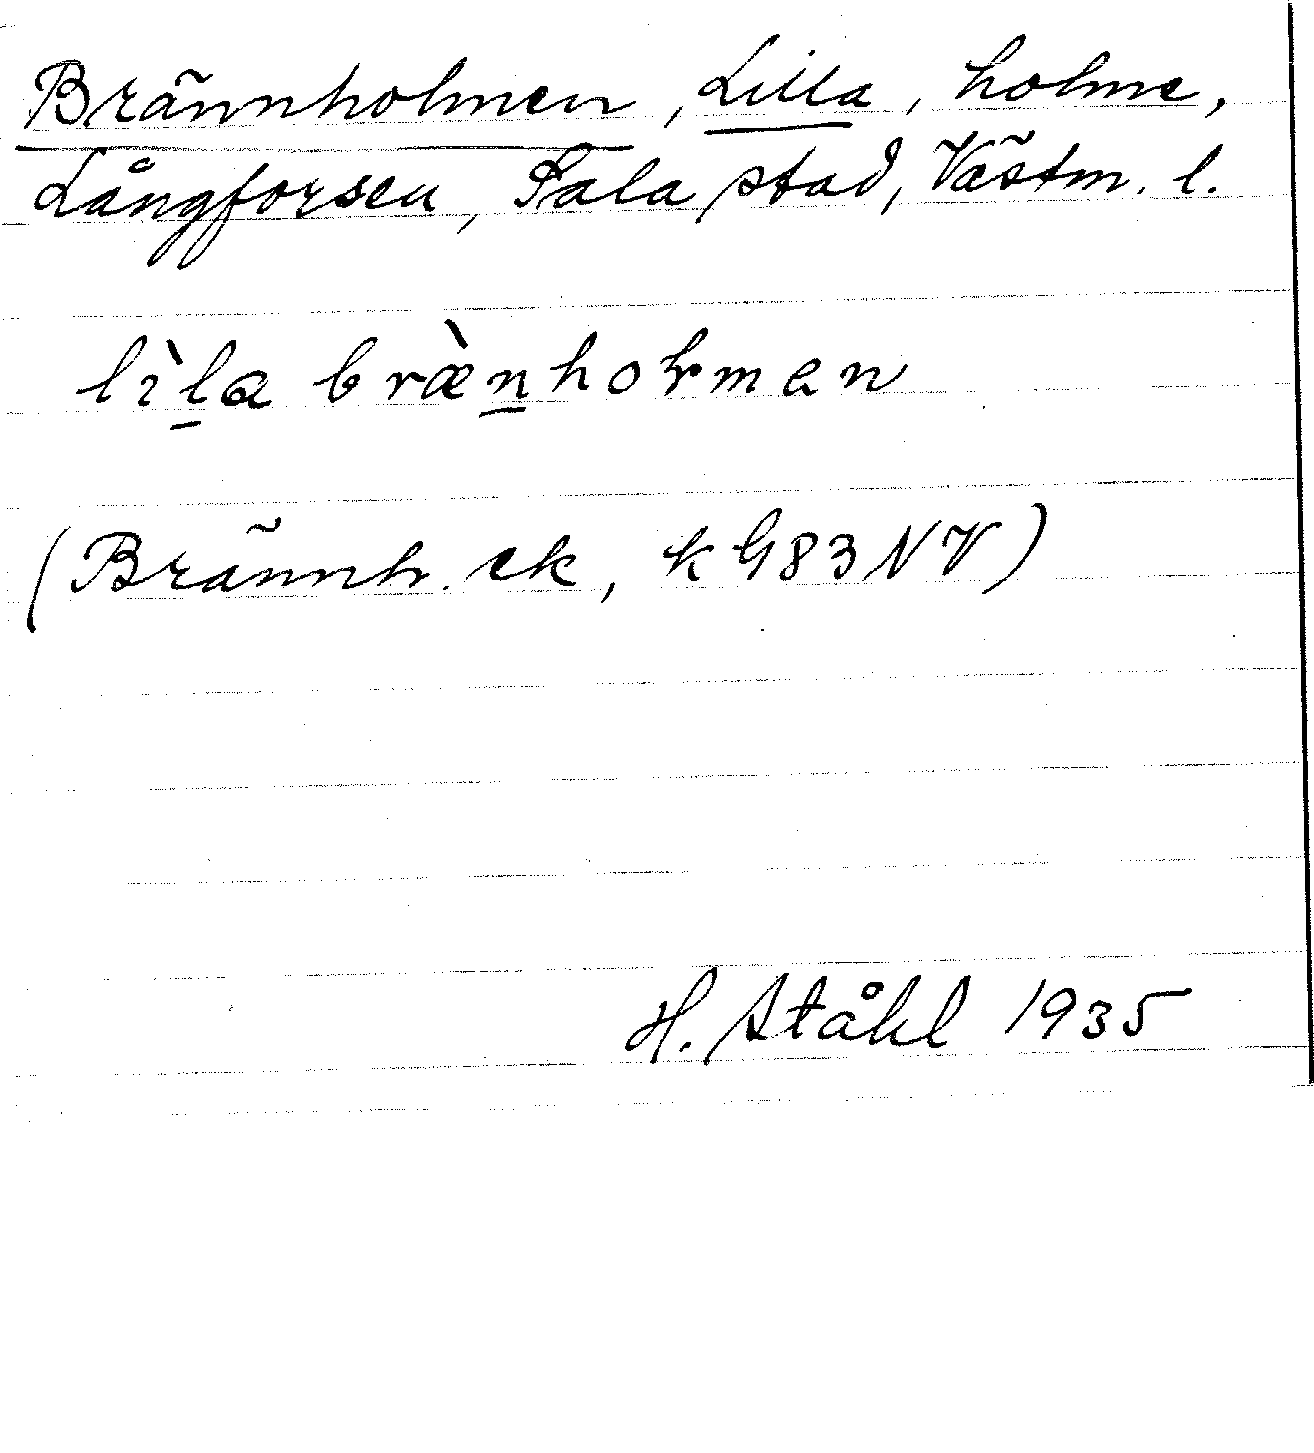 Brännholmen, Lilla, holme,
Långforsen, Sala stad, Västm. l.
lìl̲a bræ̀n̲holmen
(Brännh. ek, k G83NV)
H. Ståhl 1935